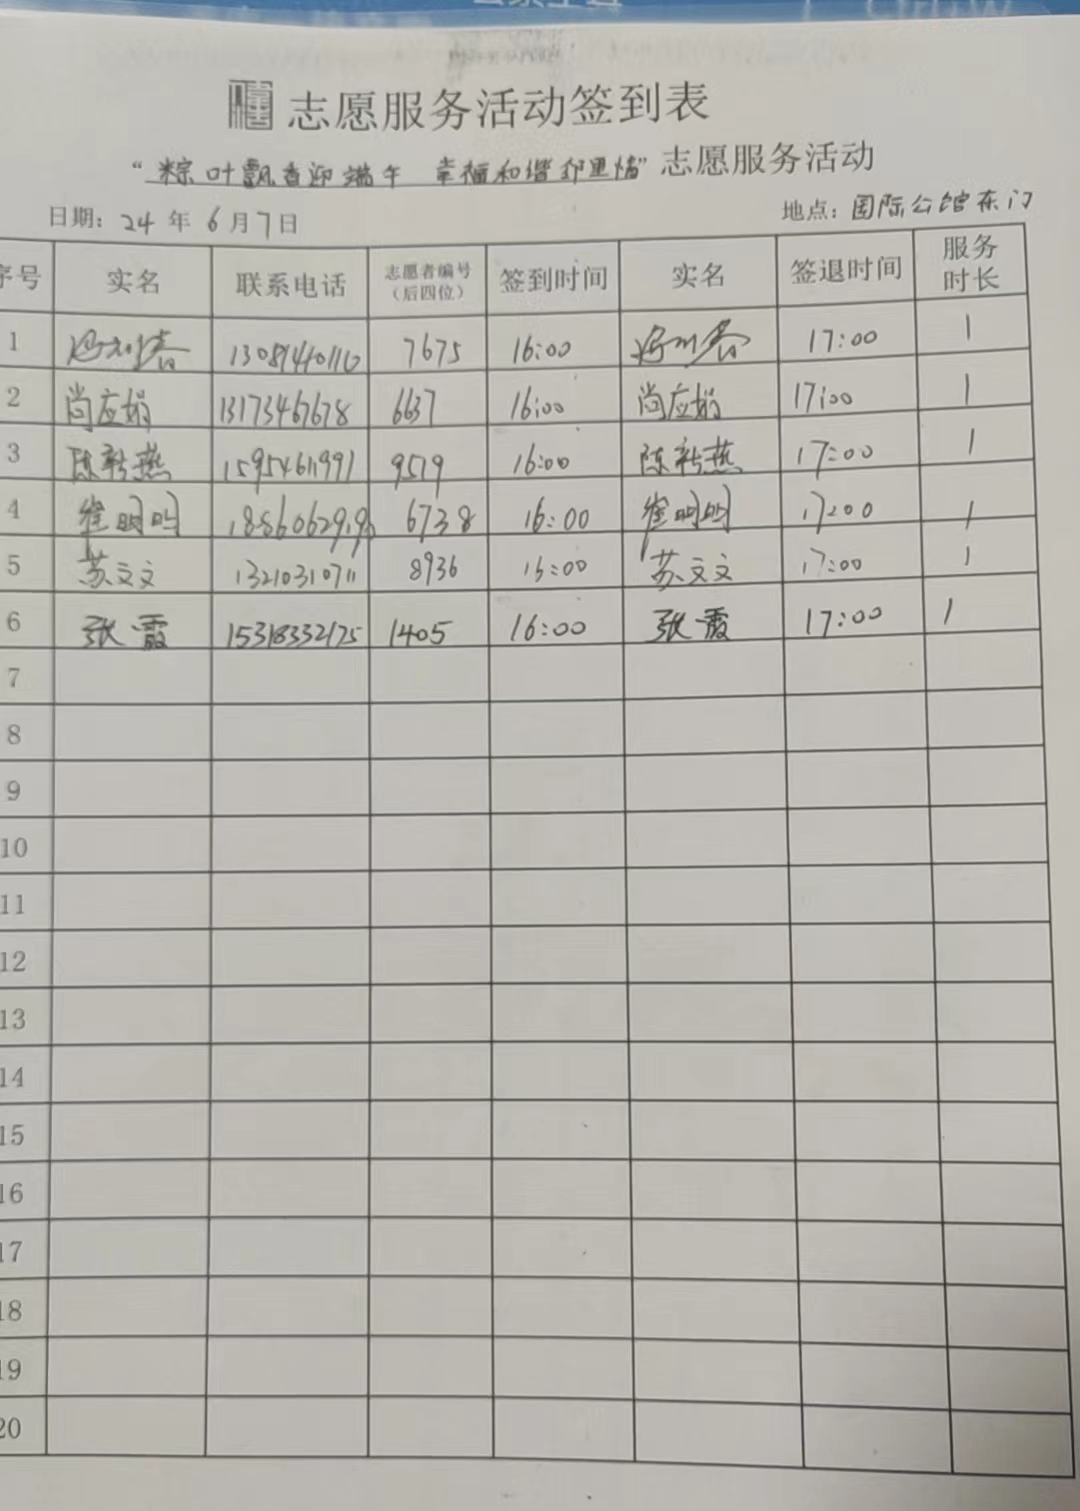 志愿服务活动签到表
"粽叶飘香迎端午 幸福和谐邻里情"志愿服务活动
日期: 24 年 6 月 7 日 地点: 国际公馆东门
序号 实名 联系电话 志愿者编号（后四位） 签到时间 实名 签退时间 服务时长
1 7675 16:00 17:00 1
2 尚应娟 13173467678 6637 16:00 尚应娟 17:00 1
3 陈新燕 15954611991 9519 16:00 陈新燕 17:00 1
4 崔明明 6738 16:00 崔明明 17:00 1
5 苏文文 13210310711 8936 15:00 苏文文 17:00 1
6 张霞 15318332175 1405 16:00 张霞 17:00 1
7
8
9
10
11
12
13
14
15
16
17
18
19
20